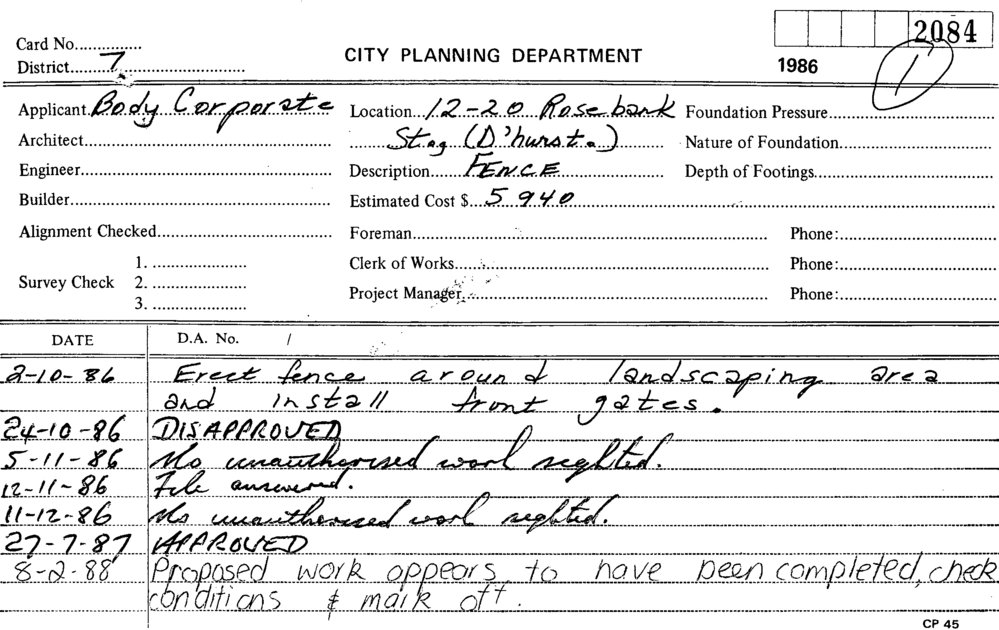 Card No............... 2084
District 7 CITY PLANNING DEPARTMENT 1986 1
Applicant Body Corporate Location 12-20 Rosebank Foundation Pressure
Architect Stag (D'hurst.) Nature of Foundation
Engineer Description FENCE Depth of Footings
Builder Estimated Cost $ 5 940
Alignment Checked Foreman Phone:
1. Clerk of Works Phone:
Survey Check 2.
Project Manager Phone:
3.
DATE D.A. No. /
2-10-86 Erect fence around landscaping area
and install front gates.
24-10-86 DISAPPROVED
5-11-86 No unauthorised work sighted.
12-11-86 File answered.
11-12-86 No unauthorised work sighted.
27-7-87 APPROVED
8-2-88 Proposed work appears to have been completed, check
conditions & mark off.
CP 45